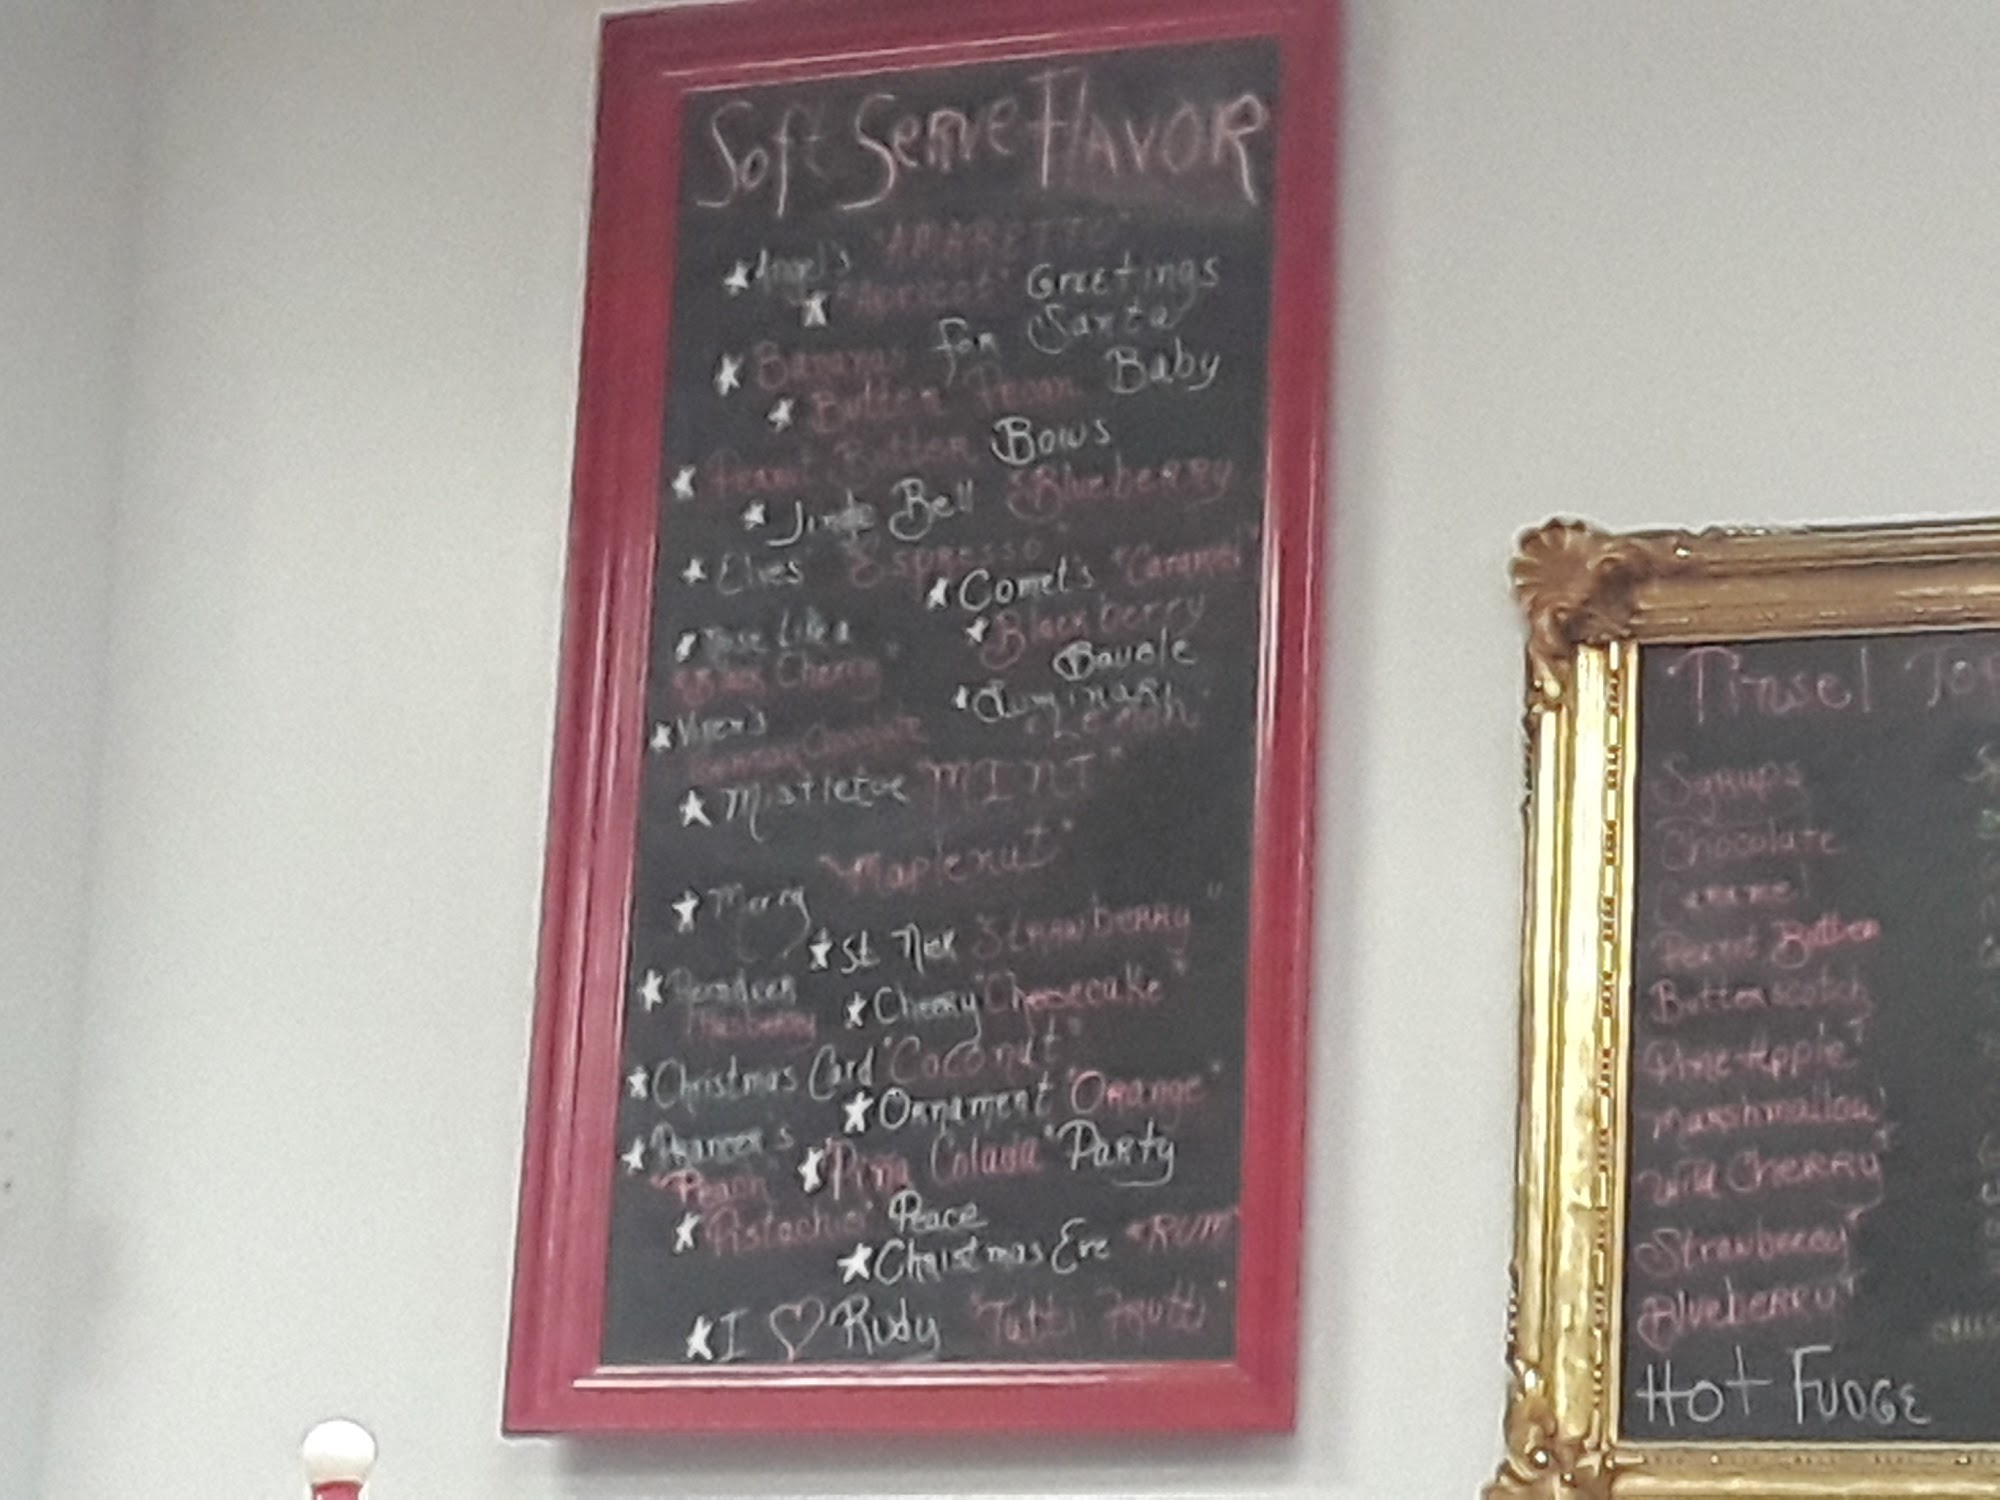 Soft Serve FLAVOR
Angel's "AMARETTO"
"Apricot" Greetings
Bananas for Santa
Butter Pecan Baby
Peanut Butter Bows
Jingle Bell Blueberry
Elves' Espresso"
Comet's "Caramel"
Nose Like a
Black Cherry"
Blackberry
Bauble
Luminari
Lemon
Vixen's
Chocolate
Mistletoe MINT"
Merry "Maplenut"
St. Nick Strawberry"
Reindeer
Cheery "Cheesecake"
Christmas Card "Coconut"
Ornament "Orange"
Prancer's
"Peach"
"Pina Colada" Party
"Pistachio" Peace
Christmas Eve "RUM"
I ♡ Rudy "Tutti Frutti"
Tinsel
Syrups
Chocolate
Caramel
Peanut Butter
Butterscotch
Pine-Apple
Marshmallow
Wild CHERRY
Strawberry
Blueberry
HOT FUDGE